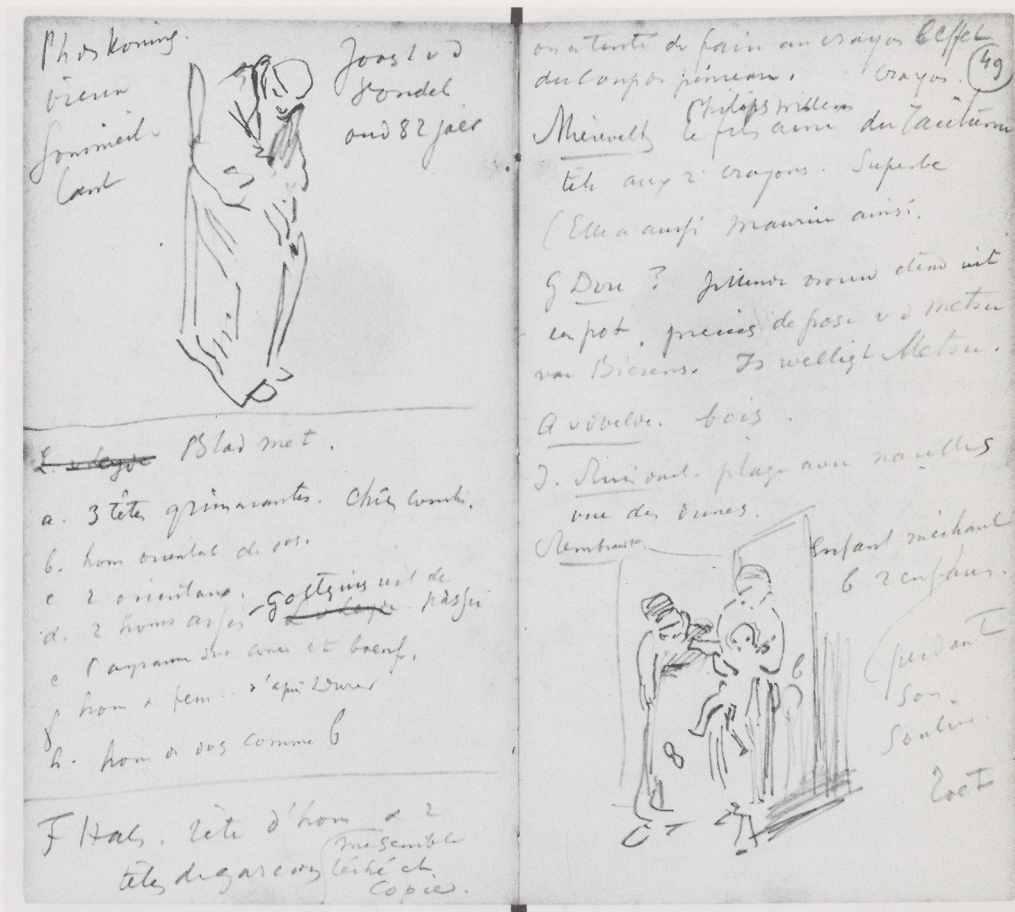 Ph. de Koning.
vieux
sommeil
lant
Joost v d
Vondel
oud 82 jaer
Blad met.
a. 3 têtes grimacantes.
b. hom oriental de dos.
c 2 orientaux.
d. 2 homs assis Goltzius uit de
e paysanne sur ane et boeuf.
f hom & fem.. d'après Durer
h. hom de dos comme b
F Hals. Tête d'hom & 2
têtes de garcons
me semble
léché et
copie.
49
on a tenté de faire au crayon l'effet
du coup de pinceau. crayon.
Philips Willem
Miereveldt le fils ainé du Taciturne
tête aux 2 crayons. Superbe
(Elle a aussi Maurice ainsi.
G Dou ? zittende vrouw
en pot. de pose v d metsu
van Is welligt Metsu.
A v d velde. bois.
J. Ruisdael. plage avec nacelles
vue des dunes.
Rembrandt
enfant méchant
b 2 enfans.
perdant
son
soulier.
zoet
b